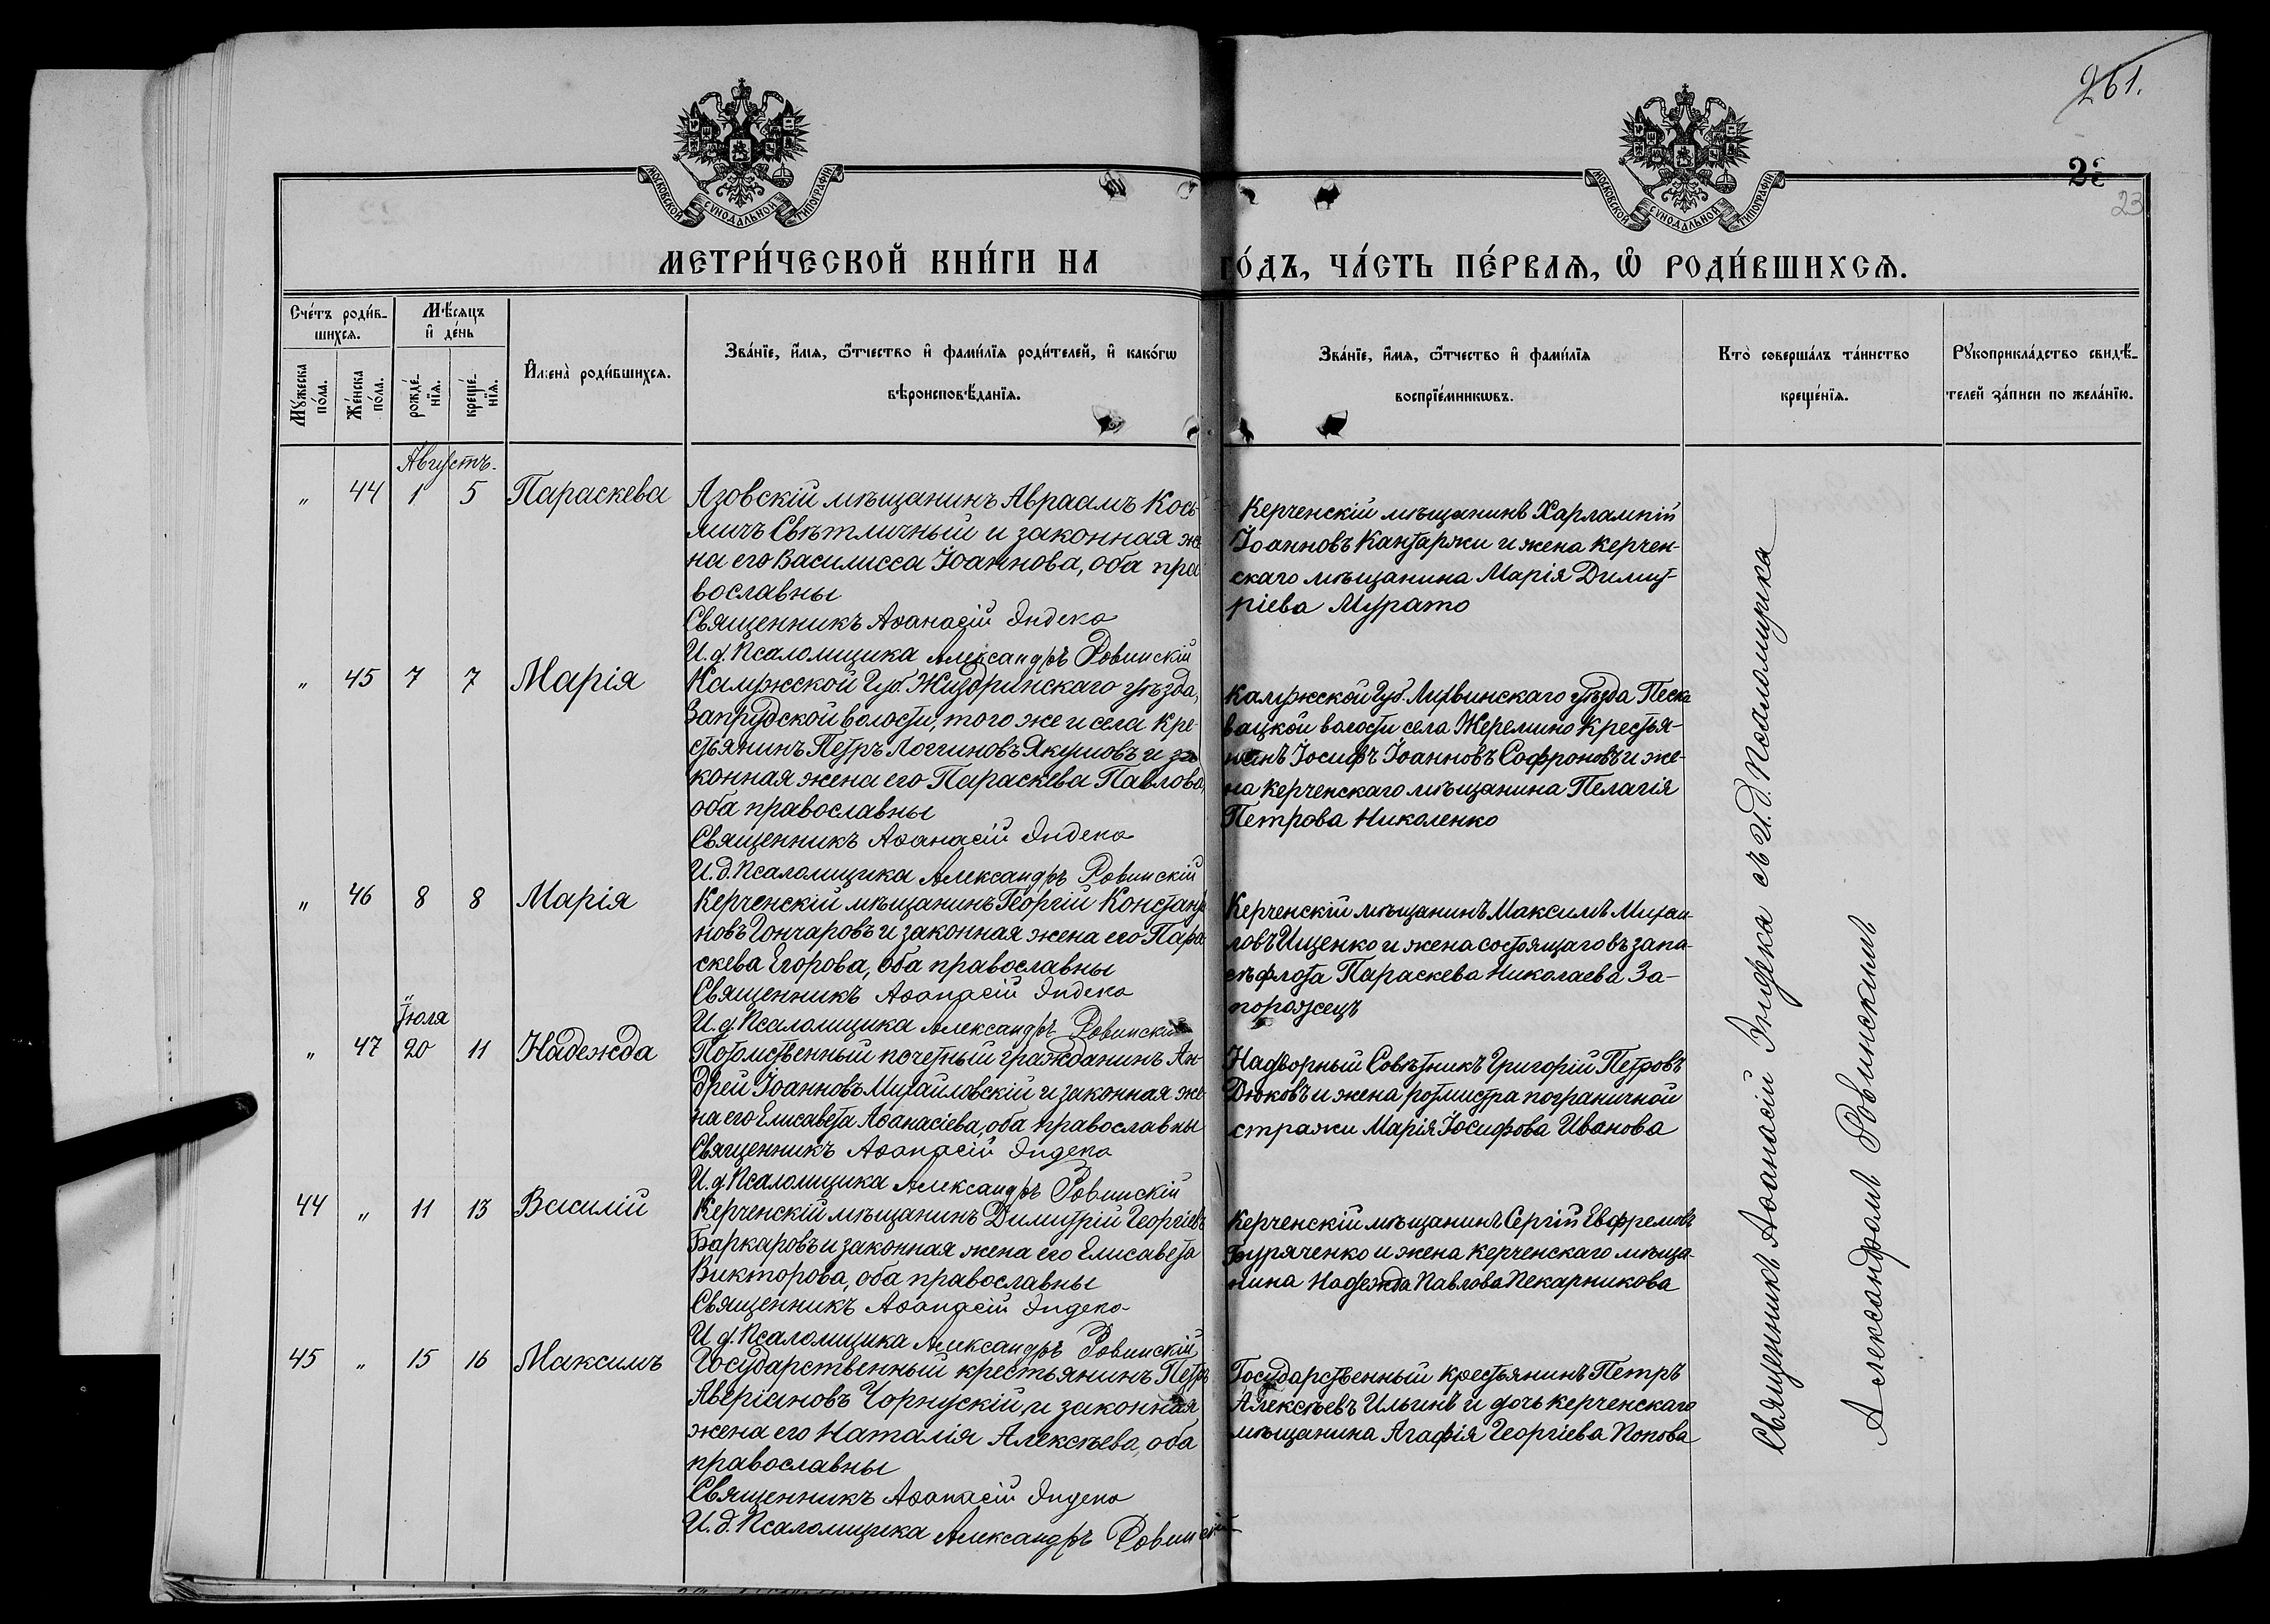 261.
МОСКОВСКОЙ СУНОДАЛЬНОЙ ТИПОГРАФІИ
МОСКОВСКОЙ СУНОДАЛЬНОЙ ТИПОГРАФІИ
23
МЕТРИ́ЧЕСКОЙ КНИ́ГИ НА ГО́ДЪ, ЧА́СТЬ ПЕ́РВАЯ, Ѡ҆ РОДИ́ВШИХСЯ.
Сче́тъ роди́в-
шихся.
Мꙋ́жеска
по́ла.
Же́нска
по́ла.
Мѣ́сяцъ
и҆ де́нь
рожде́-
нїя.
креще́-
нїя.
И҆мена̀ роди́вшихся.
Зва́нїе, и҆́мя, ѻ҆́тчество и҆ фами́лїя роди́телей, и҆ како́гѡ
вѣроисповѣ́данїя.
Зва́нїе, и҆́мя, ѻ҆́тчество и҆ фами́лїя
воспрїе́мникѡвъ.
Кто̀ соверша́лъ та́инство
креще́нїя.
Рꙋкоприкла́дство свидѣ́-
телей за́писи по жела́нїю.
Августъ.
" 44 1 5 Параскева
Азовскій мѣщанинъ Авраамъ Кось-
мичъ Свѣтличный и законная же
на его Василисса Іоаннова, оба пра
вославны
Священникъ Аѳанасій Индека
И.д. Псаломщика Александръ Ровинскій
Керченскій мѣщанинъ Харлампій
Іоанновъ Кантаржи и жена керчен-
скаго мѣщанина Марія Димит-
ріева Мурато
" 45 7 7 Марія
Калужской Губ. Жиздринскаго уѣзда,
Запрудской волости, того же и села кре-
стьянинъ Петръ Логгиновъ Якушовъ и за
конная жена его Параскева Павлова,
оба православны
Священникъ Аѳанасій Индека
И.д. Псаломщика Александръ Ровинскій
Калужской Губ. Лихвинскаго уѣзда Песко
вацкой волости села Жерелино крестья-
нинъ Іосифъ Іоанновъ Софроновъ и же-
на керченскаго мѣщанина Пелагія
Петрова Николенко
" 46 8 8 Марія
Керченскій мѣщанинъ Георгій Константи
новъ Гончаровъ и законная жена его Пара
скева Егорова, оба православны
Священникъ Аѳанасій Индека
И.д. Псаломщика Александръ Ровинскій
Керченскій мѣщанинъ Максимъ Михаи-
ловъ Ищенко и жена состоящаго въ запа-
сѣ флота Параскева Николаева За-
порожецъ
Іюля
" 47 20 11 Надежда
Потомственный почетный гражданинъ Ан-
дрей Іоанновъ Михайловскій и законная же-
на его Елисавета Аѳанасіева, оба православны
Священникъ Аѳанасій Индека
И.д. Псаломщика Александръ Ровинскій
Надворный Совѣтникъ Григорій Петровъ
Дюковъ и жена ротмистра пограничной
стражи Марія Іосифова Иванова
44 " 11 13 Василій
Керченскій мѣщанинъ Димитрій Георгіевъ
Баркаровъ и законная жена его Елисавета
Викторова, оба православны
Священникъ Аѳанасій Индека
И.д. Псаломщика Александръ Ровинскій
Керченскій мѣщанинъ Сергій Евфремовъ
Буряченко и жена керченскаго мѣща-
нина Надежда Павлова Пекарникова
45 " 15 16 Максимъ
Государственный крестьянинъ Петръ
Аверіановъ Чорнускій, и законная
жена его Наталія Алексѣева, оба
православны
Священникъ Аѳанасій Индека
И.д. Псаломщика Александръ Ровинскій
Государственный крестьянинъ Петръ
Алексѣевъ Ильинъ и дочь керченскаго
мѣщанина Агафія Георгіева Попова
Священникъ Аѳанасій Индека съ И.д. Псаломщика
Александромъ Ровинскимъ